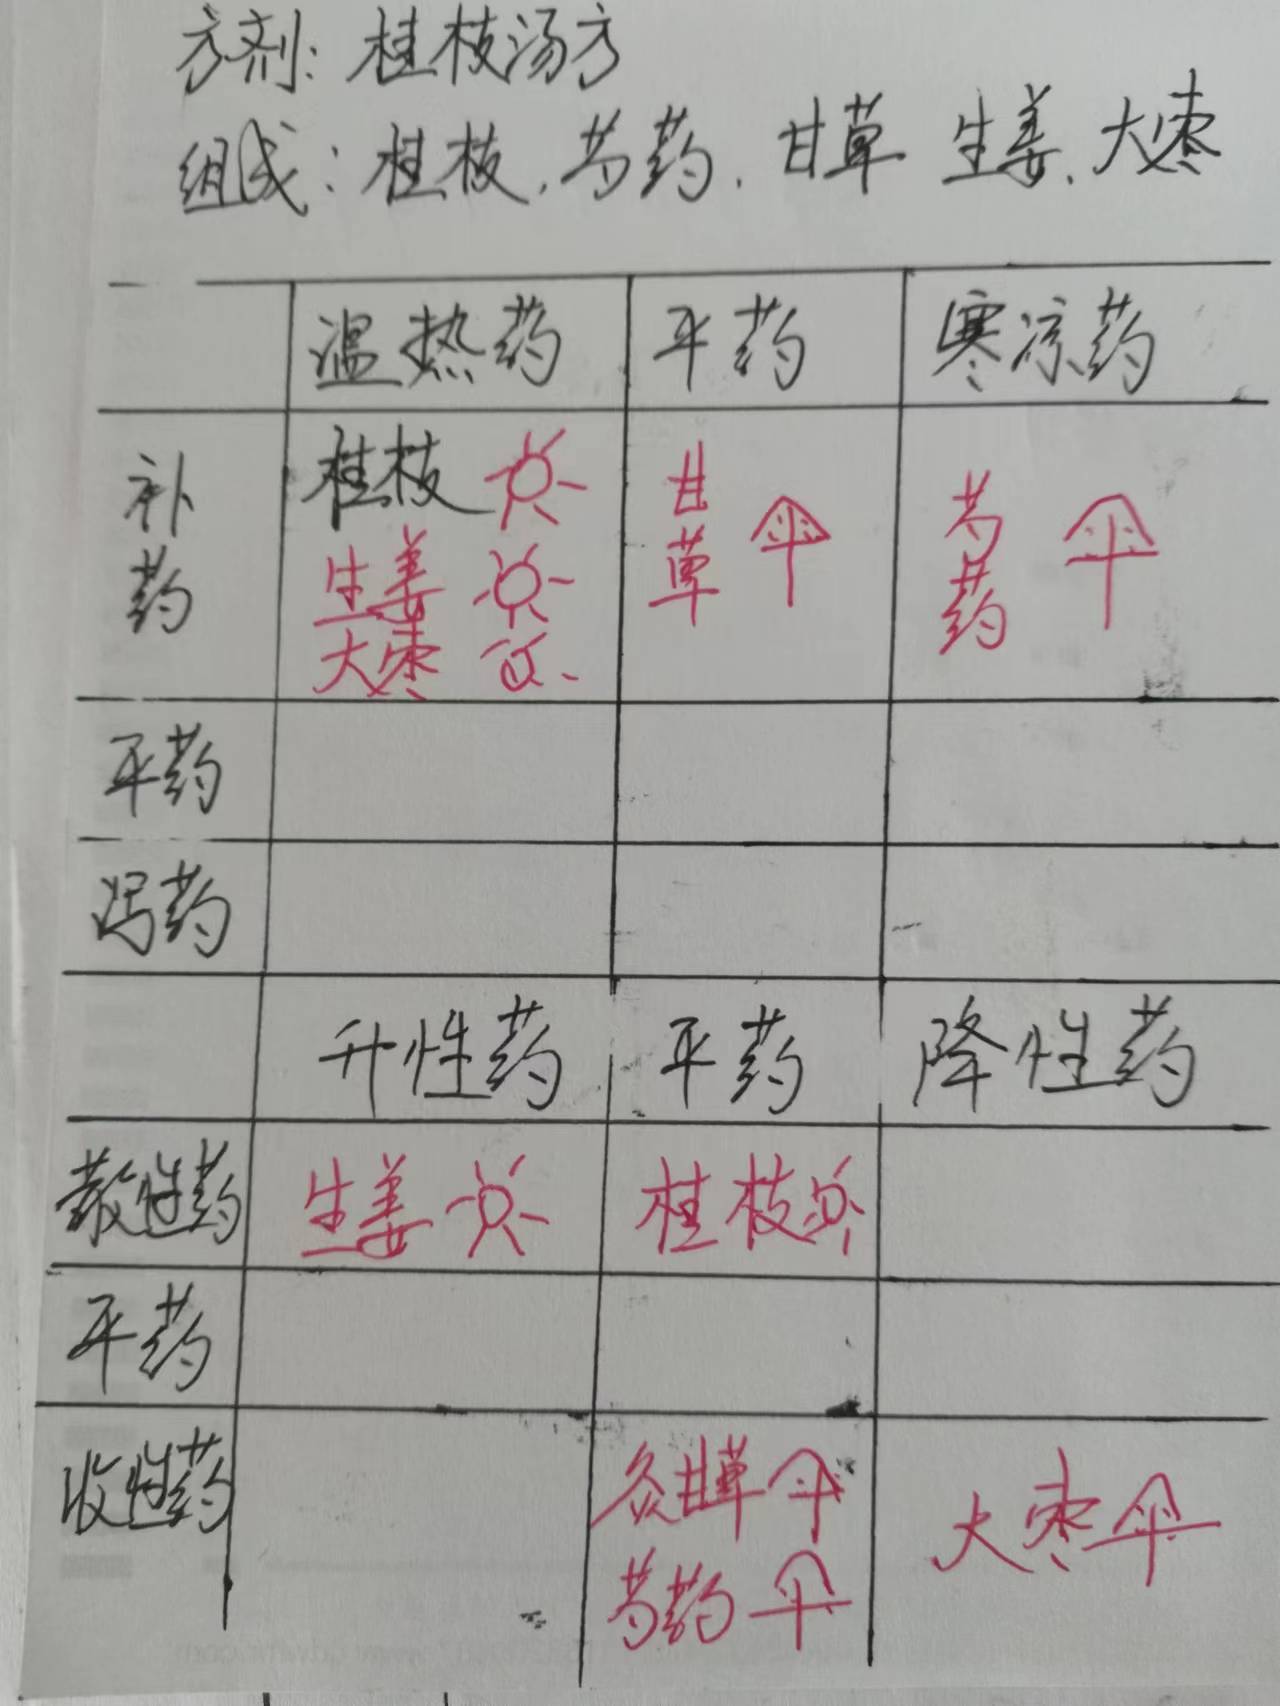 方剂：桂枝汤方
组成：桂枝，芍药，甘草 生姜、大枣
温热药 平药 寒凉药
补药 桂枝 甘草 芍药
生姜
大枣
平药
泻药
升性药 平药 降性药
散性药 生姜 桂枝
平药
收性药 炙甘草 大枣
芍药